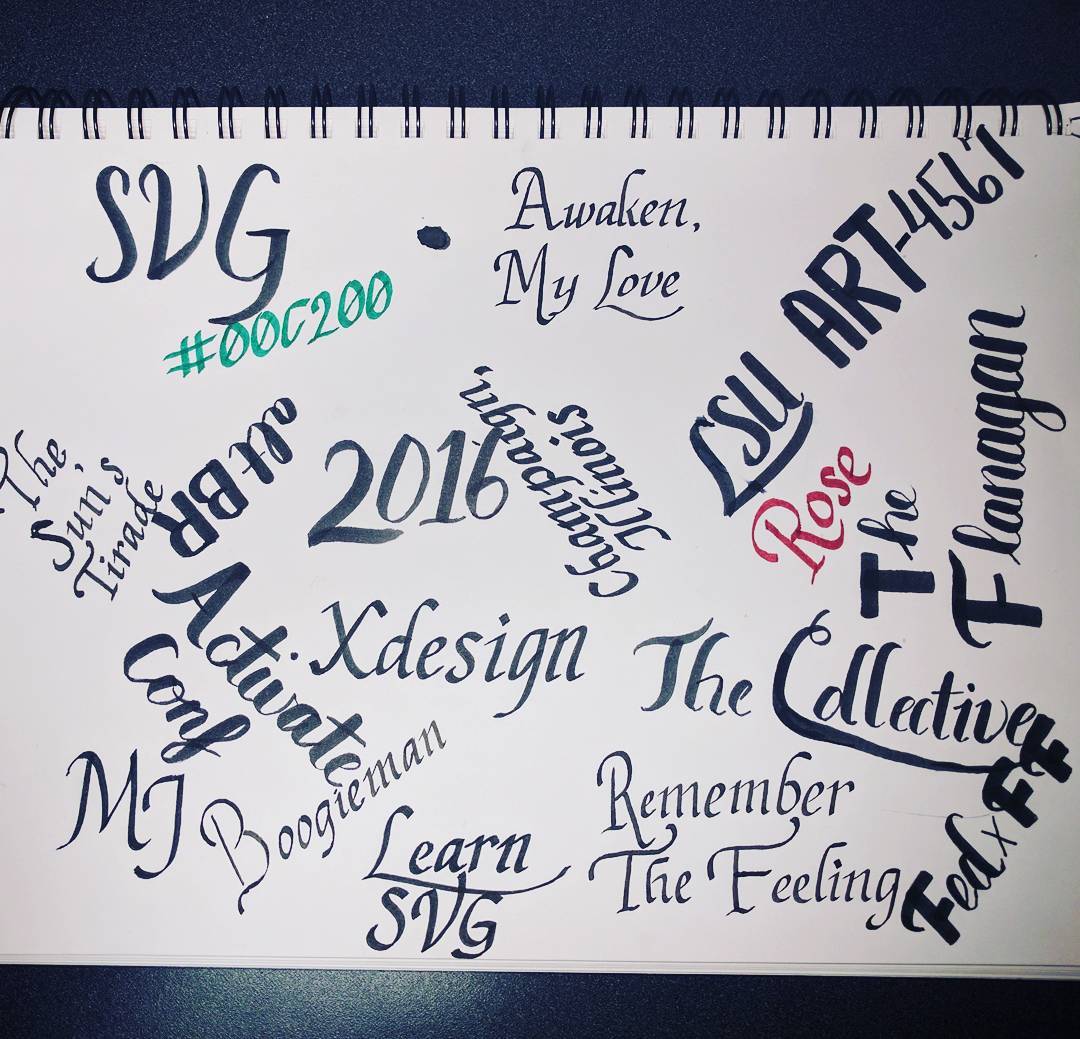 SVG
#00C200
Awaken,
My Love
LSU ART-4561
The
Sun's
Tirade
alt BR
2016
Champaign,
Illinois
Rose
The
Flanagan
Activate
Conf
Xdesign
The Collective
MJ
Boogieman
Learn
SVG
Remember
The Feeling
Fed x FF